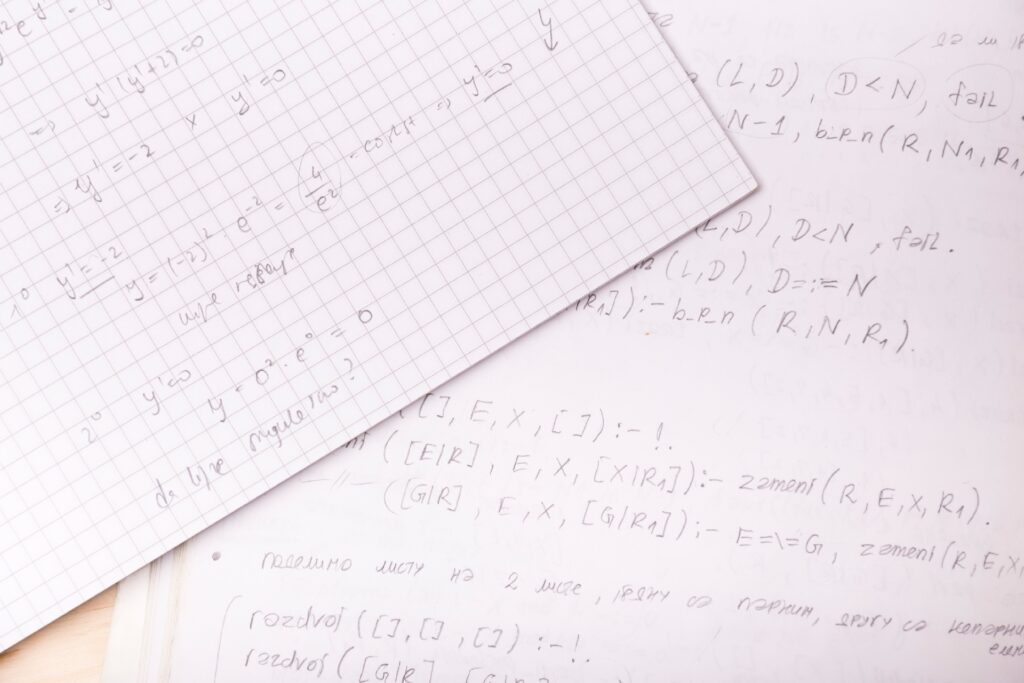 ⇒ y'(y'+2)=0
⇒ y' = -2 x y'=0
y
↓
1° y' = -2
y = (-2)² e⁻² = 4/e² = const ⇒ y'=0
nije rešenje
2° y'=0
y = 0² · e⁰ = 0
da li je singularno?
(L,D), D<N, fail
N-1, b_p_n(R,N1,R1
(L,D), D<N, fail.
(L,D), D=:=N
R1]):- b_p_n(R,N,R1).
([],E,X,[]):-!.
([E|R],E,X,[X|R1]):- zameni(R,E,X,R1).
([G|R],E,X,[G|R1]):- E=\=G, zameni(R,E,X,
• поделимо листу на 2 листе, једну са парним, другу са непарним
razdvoj([],[],[]):-!.
razdvoj([G|R]